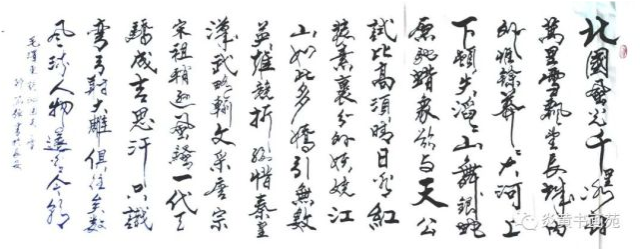 北國風光千里冰封
萬里雪飄望長城內
外惟餘莽〻大河上
下頓失滔〻山舞銀蛇
原馳蠟象欲与天公
試比高須晴日看紅
裝素裹分外妖嬈江
山如此多嬌引無數
英雄競折腰惜秦皇
漢武略輸文采唐宗
宋祖稍遜風騷一代天
驕成吉思汗只識
彎弓射大雕俱往矣數
風流人物還看今朝
毛澤東詞沁園春雪
書於長安
炎黄书画苑